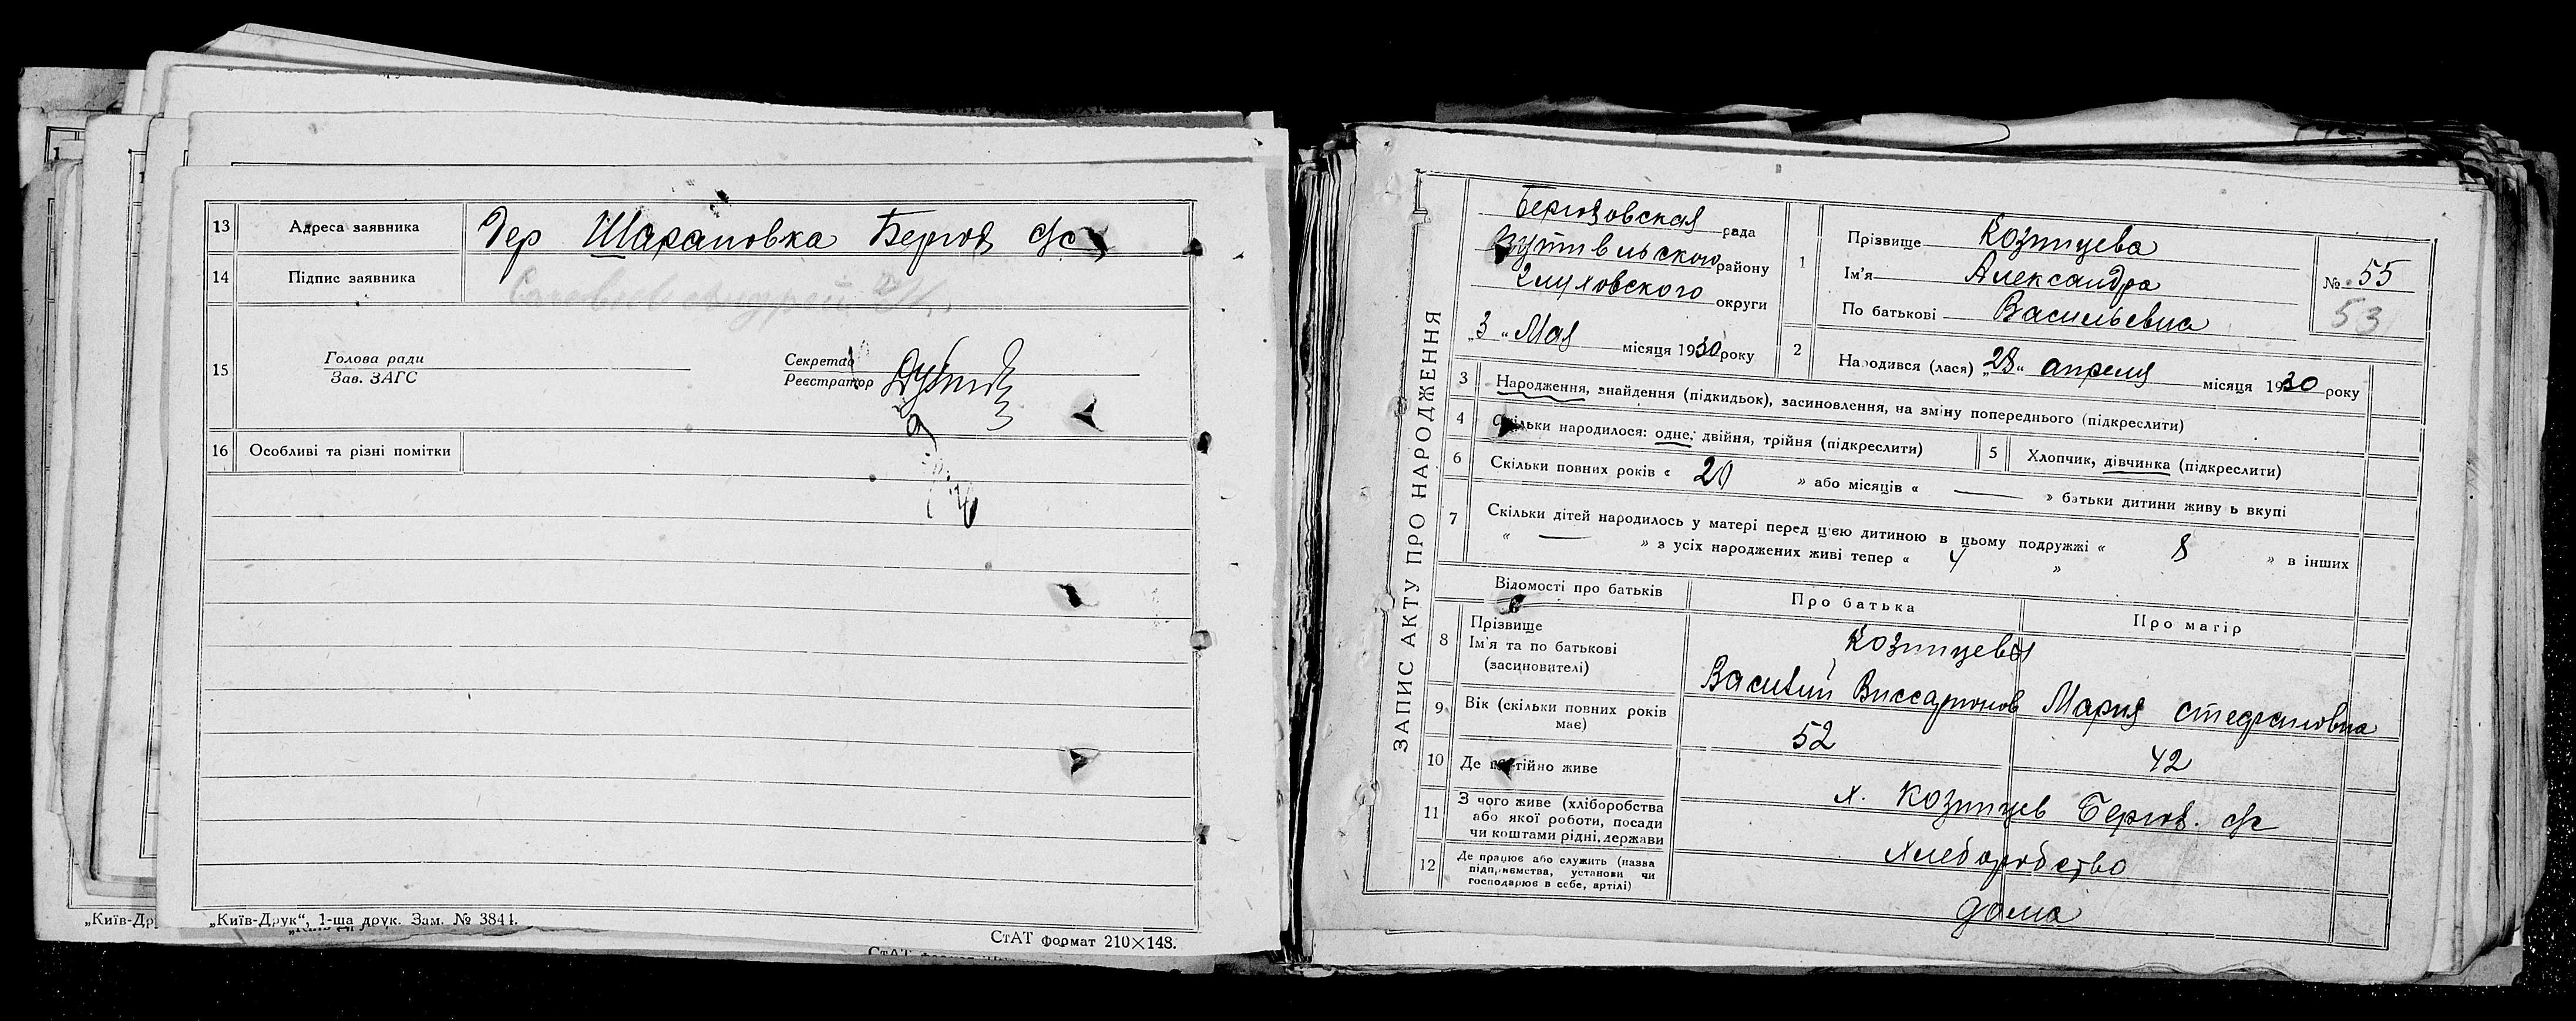 13 Адреса заявника Дер Шарановка Бергов с/с
14 Підпис заявника
15 Голова ради
Зав. ЗАГС
Секретар
Реєстратор
16 Особливі та різні помітки
„Київ-Друк“, 1-ша друк. Зам. № 3844.
СтАТ формат 210×148.
ЗАПИС АКТУ ПРО НАРОДЖЕННЯ
рада
Путивльского району
Глуховского округи
„3“ Мая місяця 1930 року
1 Прізвище Козитцева
Ім'я Александра
По батькові Васильевна
№ 55
53
2 Народився (лася) „28“ апреля місяця 1930 року
3 Народження, знайдення (підкидьок), засиновлення, на зміну попереднього (підкреслити)
4 Скільки народилося: одне, двійня, трійня (підкреслити)
5 Хлопчик, дівчинка (підкреслити)
6 Скільки повних років « 20 » або місяців « — » батьки дитини живуть вкупі
7 Скільки дітей народилось у матері перед цією дитиною в цьому подружжі « 8 » в інших
« — » з усіх народжених живі тепер « 4 »
Відомості про батьків
Про батька
Про матір
8 Прізвище
Ім'я та по батькові
(засиновителі)
Козитцевы
Василий Виссарионов Мария Стефановна
9 Вік (скільки повних років має) 52 42
10 Де постійно живе х. Козитцев Бергов. с/с
11 З чого живе (хліборобства
або якої роботи, посади
чи коштами рідні, держави
Хлеборобство
12 Де працює або служить (назва
підприємства, установи чи
господарює в себе, артілі)
дома